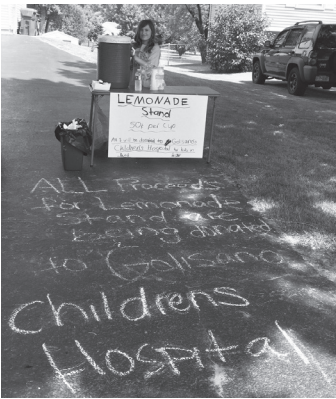 LEMONADE
Stand
50¢ per Cup
will be donated to Golisano
Children's Hospital
ALL Proceeds
for Lemonade
Stand are
being donated
to Golisano
Childrens
Hospital